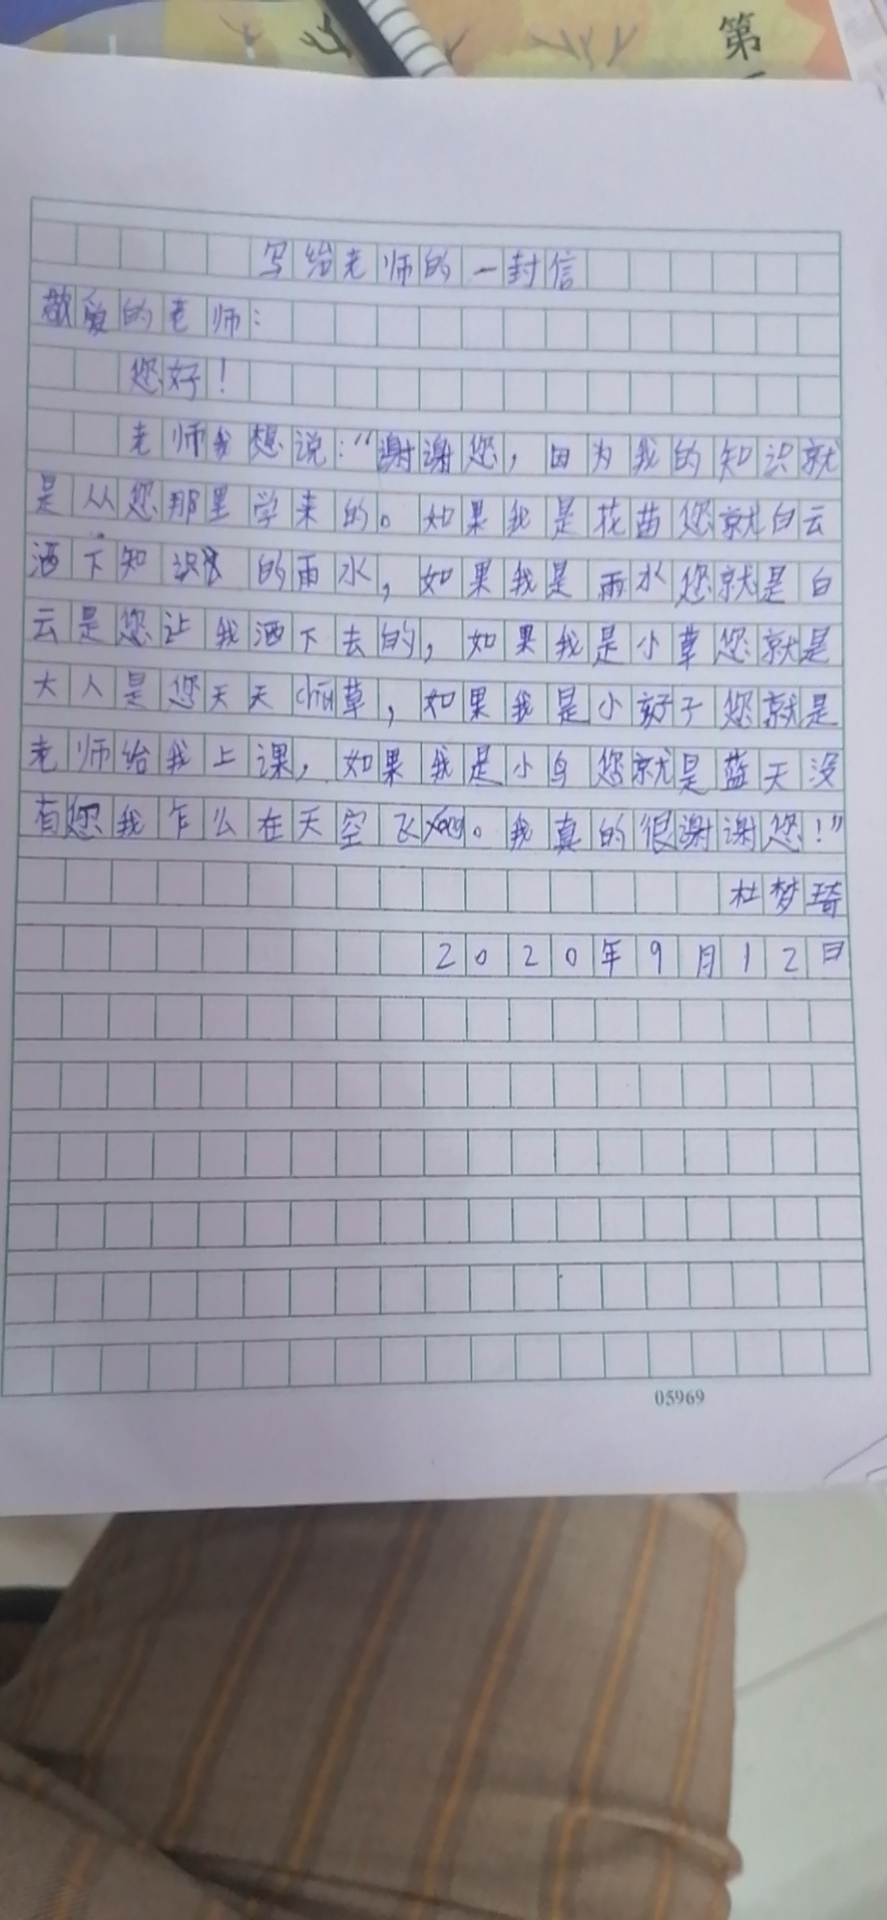 第
写给老师的一封信
敬爱的老师：
您好！
老师我想说：“谢谢您，因为我的知识就
是从您那里学来的。如果我是花苗您就白云
洒下知识的雨水，如果我是雨水您就是白
云是您让我洒下去的，如果我是小草您就是
大人是您天天chú草，如果我是小孩子您就是
老师给我上课，如果我是小鸟您就是蓝天没
有您我乍么在天空飞xáng。我真的很谢谢您！”
杜梦琦
2020年9月12日
05969